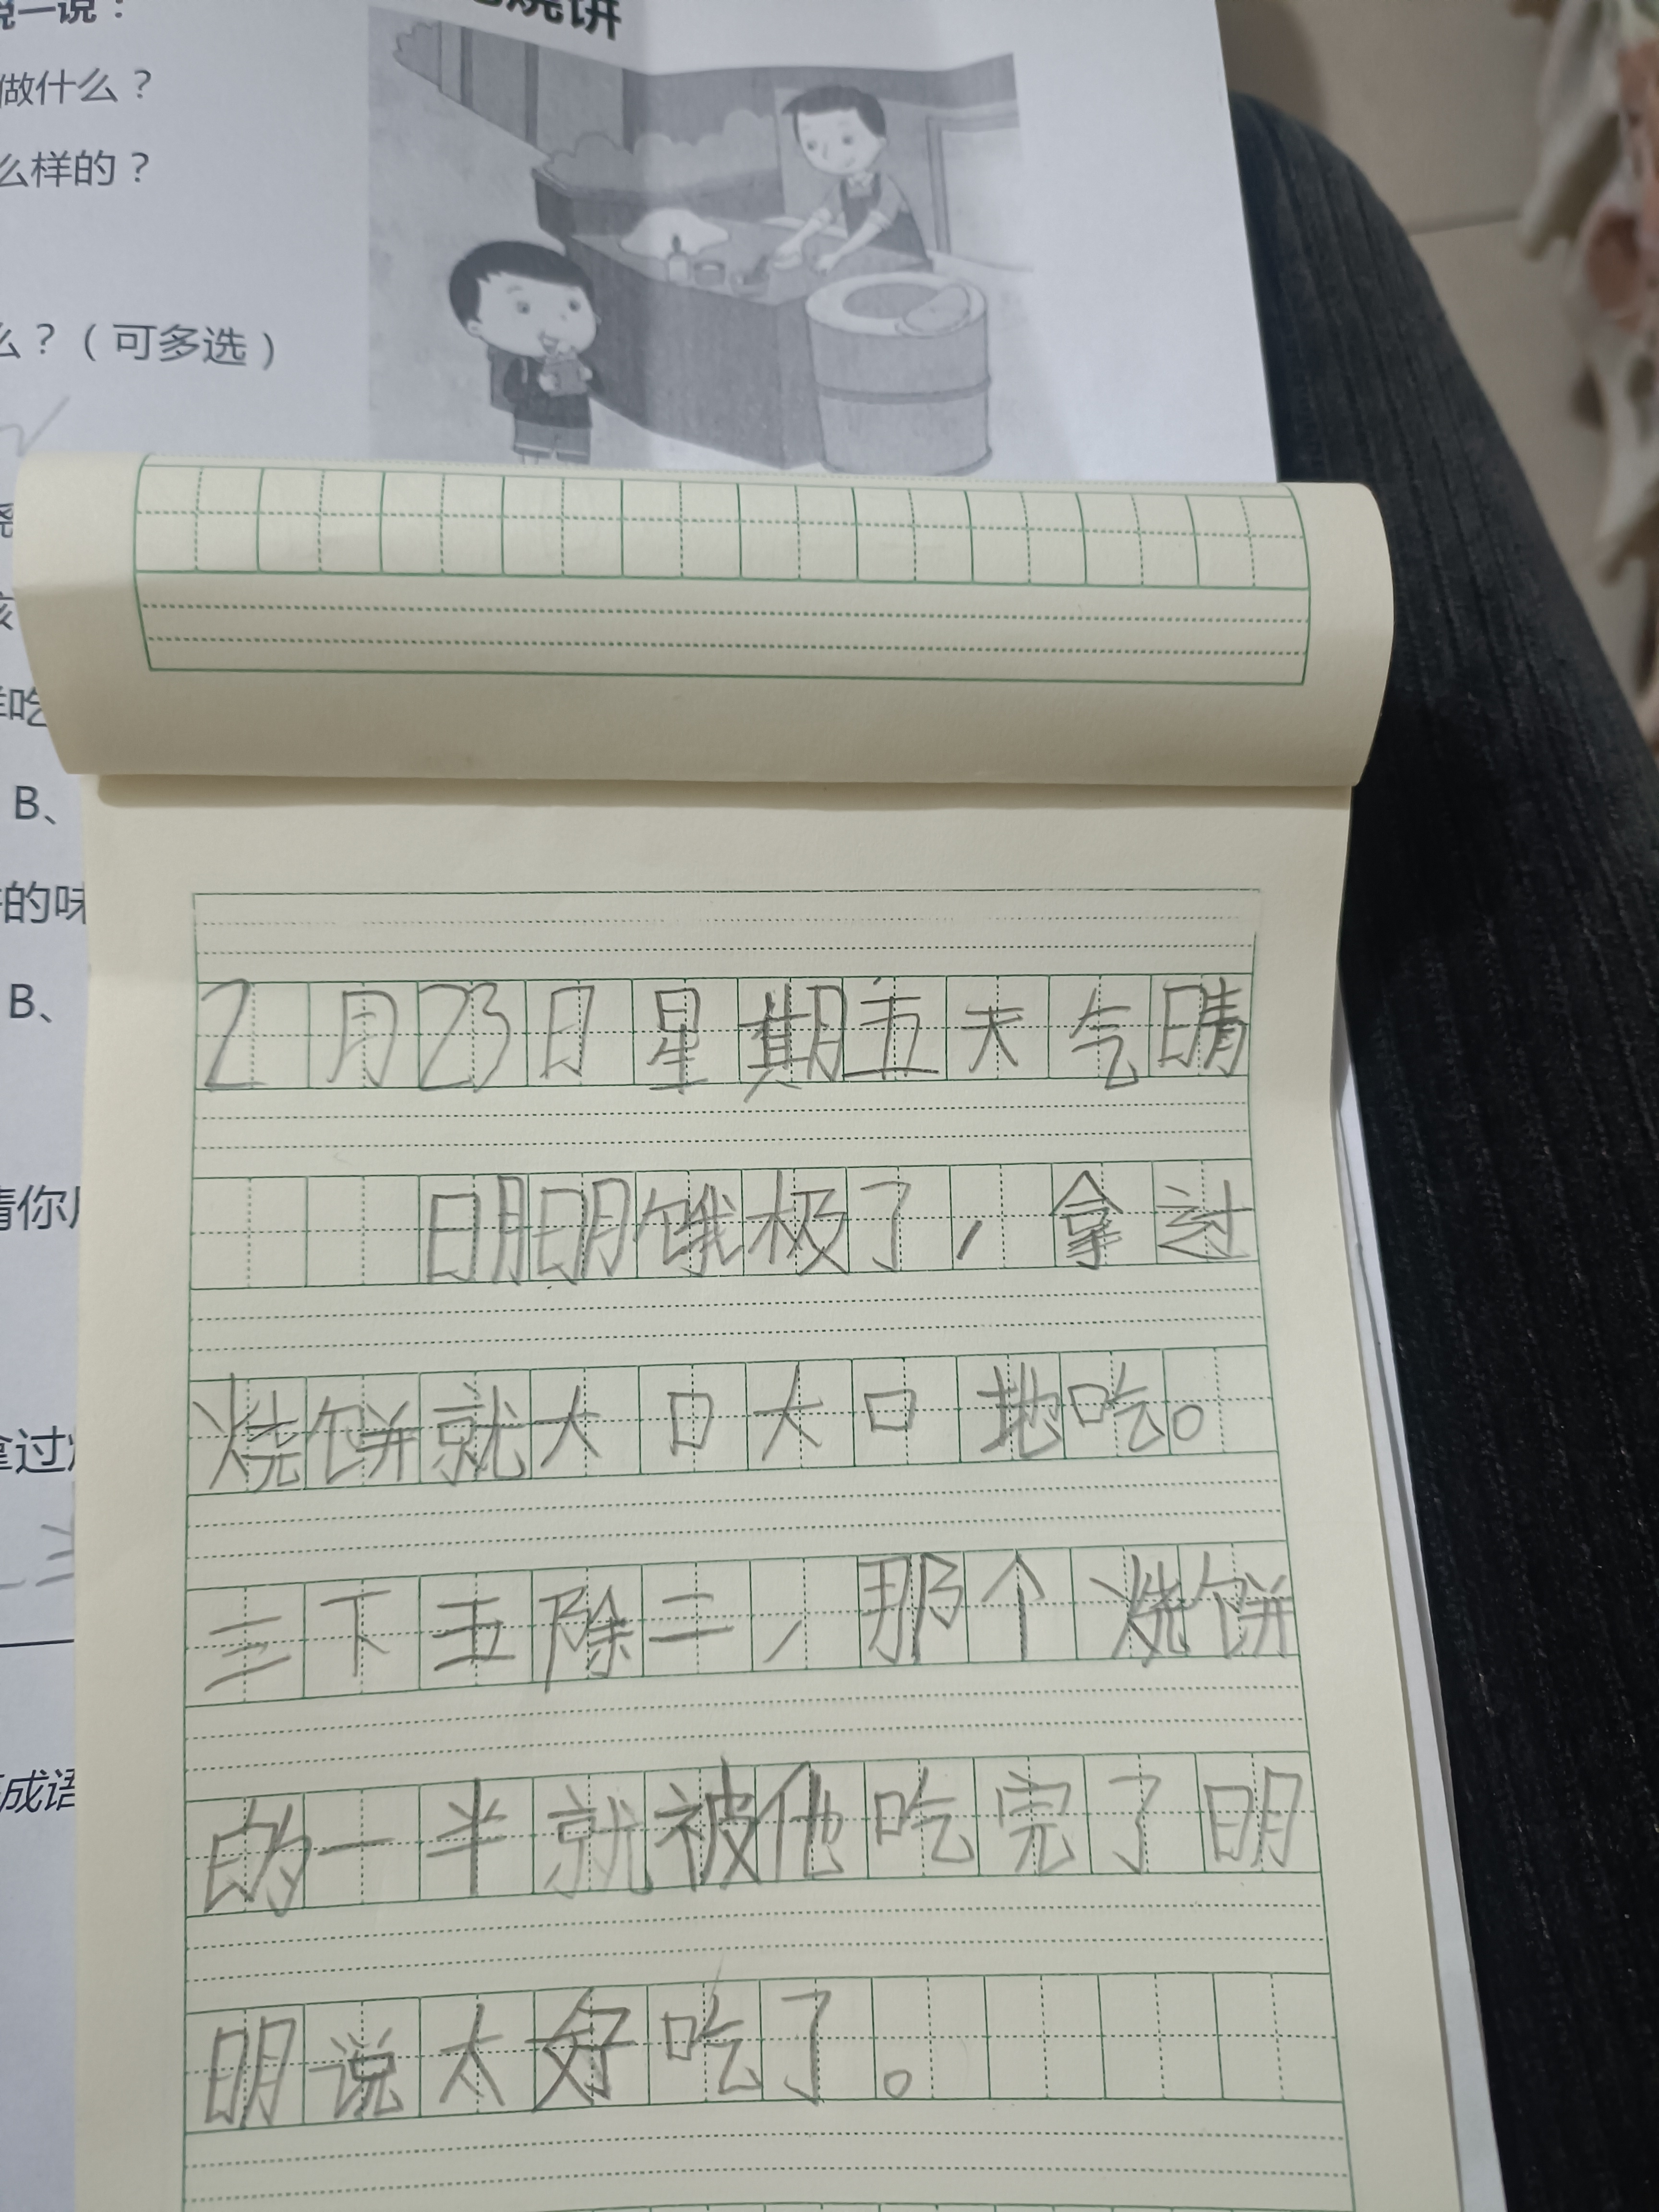 说一说：
烧饼
做什么？
么样的？
么？（可多选）
样吃
B、
的味
B、
请你用
拿过
成语
2月23日星期五天气晴
明明饿极了，拿过
烧饼就大口大口地吃。
三下五除二，那个烧饼
的一半就被他吃完了明
明说太好吃了。